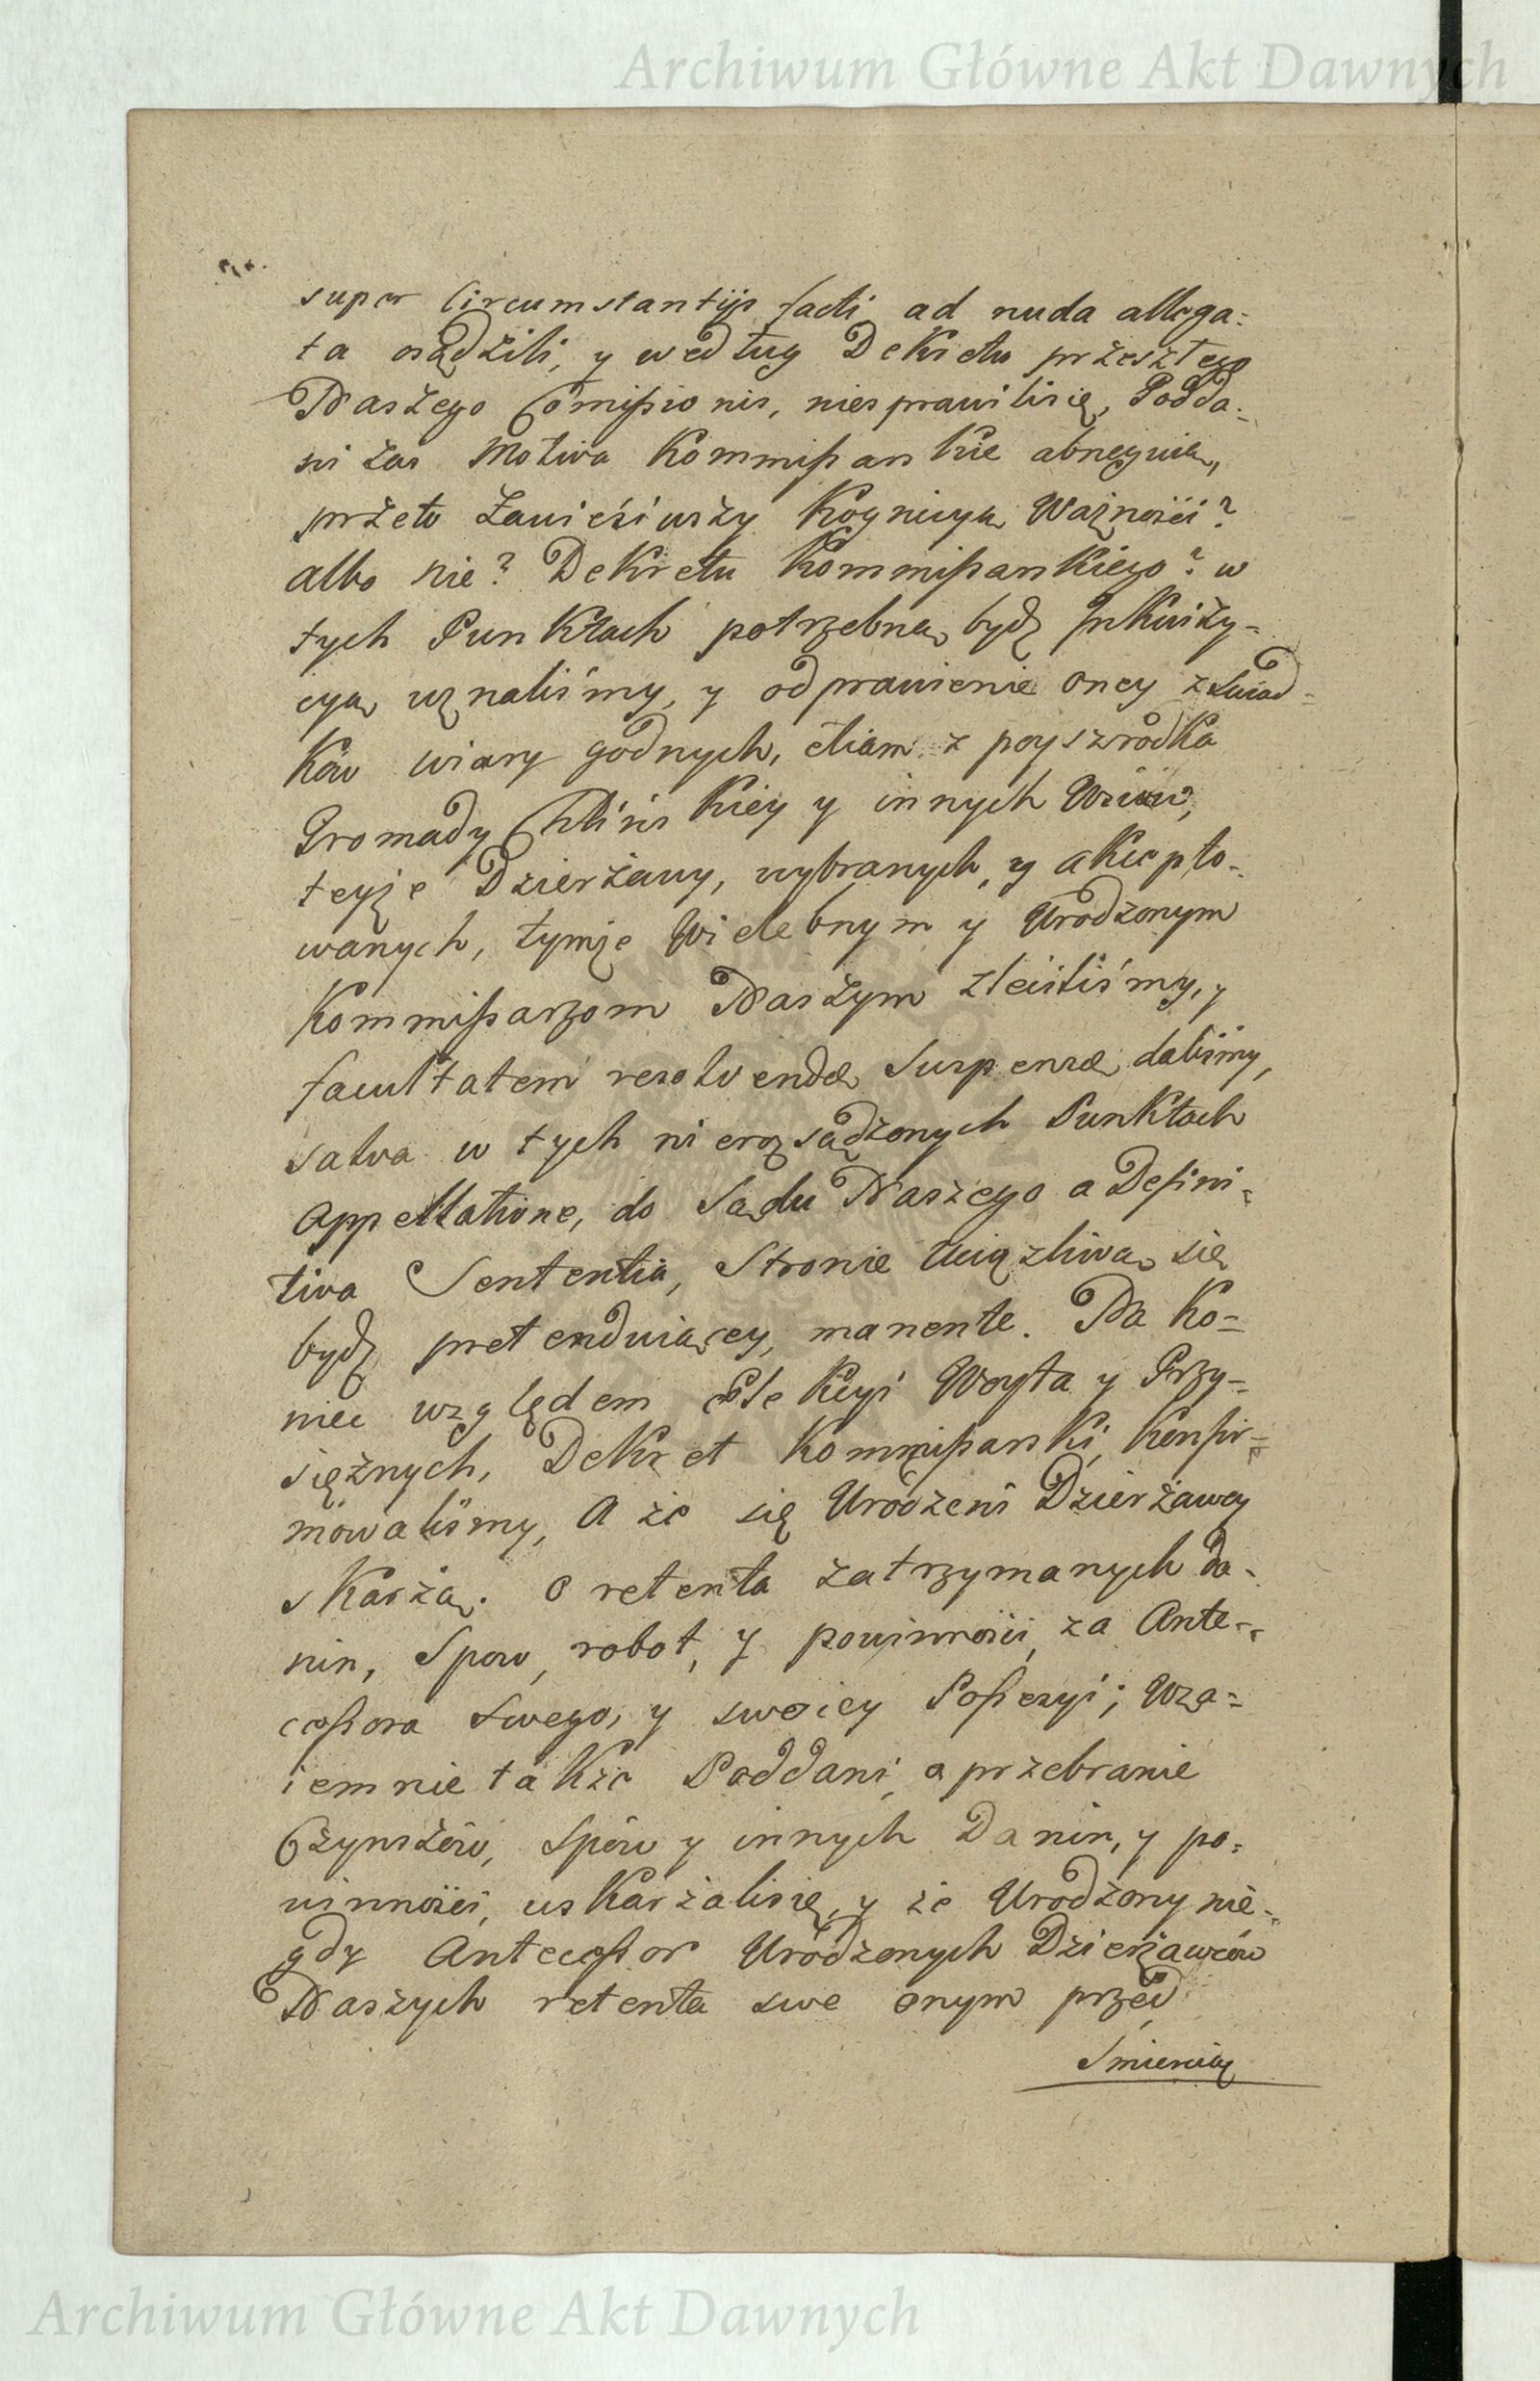 Archiwum Główne Akt Dawnych
super Circumstantijs facti ad nuda allega-
ta osądzili, y według Dekretu przeszłego
Naszego Comissionis, niesprawilisię, Podda-
ni zas Motiva Kommissarskie abneguią,
przeto Zawiesiwszy Kognicyą Ważności?
albo nie? Dekretu Kommissarskiego? w
tych Punktach potrzebną bydź Inkwizy-
cyą uznaliśmy, y odprawienie oney z swiad-
kow wiary godnych, etiam z poyszrodka
Gromady Chlińskiey y innych Wsiow,
teyże Dzierżawy, wybranych, y akcepto-
wanych, tymże Wielebnym y Urodzonym
Kommissarzom Naszym zleciliśmy, y
facultatem resolvendæ Suspensæ daliśmy,
salva w tych nierozsądzonych Punktach
Appellatione, do Sądu Naszego a Defini-
tiva Sententia, Stronie Uciążliwą się
bydź pretenduiącey, manente. Na Ko-
niec względem Elekcyi Woyta y Przy-
siężnych, Dekret Kommissarski, Konfir-
mowaliśmy, A że się Urodzeni Dzierżawcy
skarżą. o retenta zatrzymanych da-
nin, Spow, robot, y powinności, za Ante-
cessora swego, y swoiey Possesyi; Wza-
iemnie także Poddani, o przebranie
Czynszów, Spów y innych Danin, y po-
winności, uskarżalisię, y że Urodzony nie-
gdy Antecessor Urodzonych Dzierżawców
Naszych retenta swe onym przed
Smiercią
Archiwum Główne Akt Dawnych